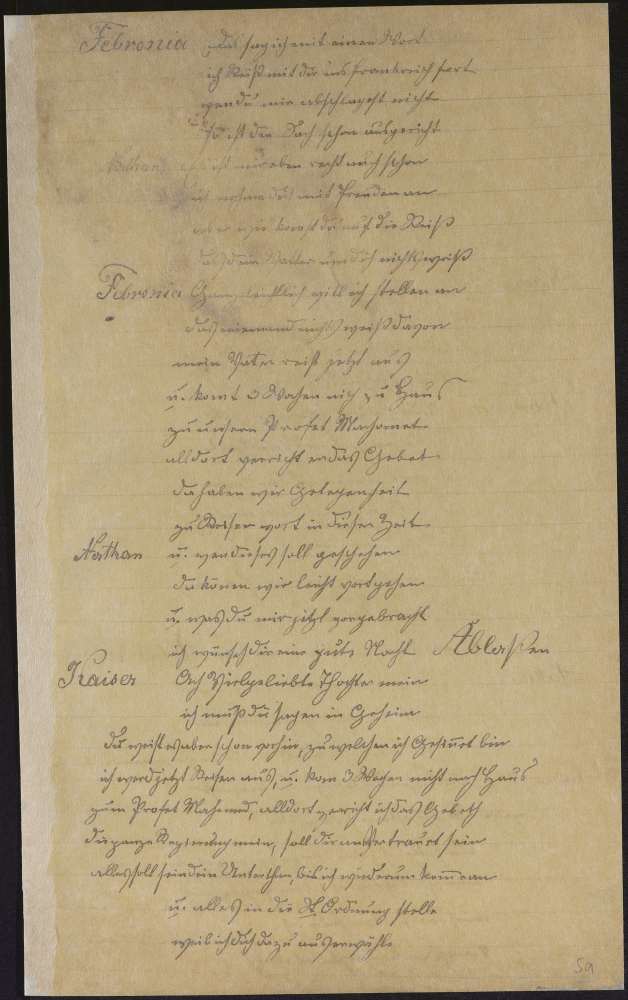 Febronia das sag ich mit einen Wort
ich Reiß mit dir ins Frankreich fort
wen du mir abschlagest nicht
so ist den Sach schon ausgericht
Nathan ist mir eben recht auch schon
ich nehme das mit Freuden an
aber wie komst du auf die Reiß
das dein Vatter um dich nichts weiß
Febronia Ganz will ich stellen an
das niemand nichts weiß davon
mein Vater reist jetzt aus
u. komt 3 Wochen nich zu Haus
zu unsern Profet Machomet
alldort verricht er das Gebet
da haben wir Gelegenheit
zu Reisen vort in dieser Zeit
Nathan u. wen dieses soll geschehen
da könen wir leicht vortgehen
u. was du mir jetzt vorgebracht
ich wünsch dir eine gute Nacht Ablaßen
Kaiser Ach Vielgeliebte Thochter mein
ich muß dir sagen in Geheim
du weist es aber schon vorhin, zu welchen ich Gesinnet bin
ich werd jetzt Reisen aus, u. kom 3 Wochen nicht nach Haus
zum Profet Mahomed, alldort verricht ich das Gebeth
die ganze Regierung mein, soll dir anVertraut sein
alles soll sein dein Unterthan, bis ich wiederum kome an
u. alles in die Ordnung stelle
weil ich dich dazu auserwähle
59